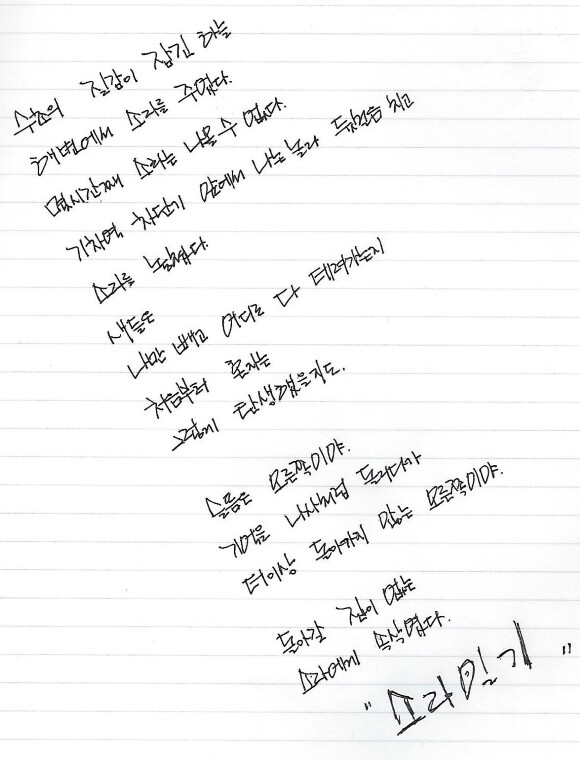 수초의 질감이 잠긴 하늘
해변에서 소라를 주웠다.
몇시간째 소라는 나올 수 없다.
기차역 차단기 앞에서 나는 놀라 뒷걸음 치고
소라를 놓쳤다.
새들은
나만 빼고 어디로 다 데려가는지
처음부터 혼자는
그렇게 탄생했을지도.
슬픔은 오른쪽이야.
기억을 나사처럼 돌리다가
더이상 돌아가지 않는 오른쪽이야.
돌아갈 집이 없는
소라에게 속삭였다.
"소라일기"